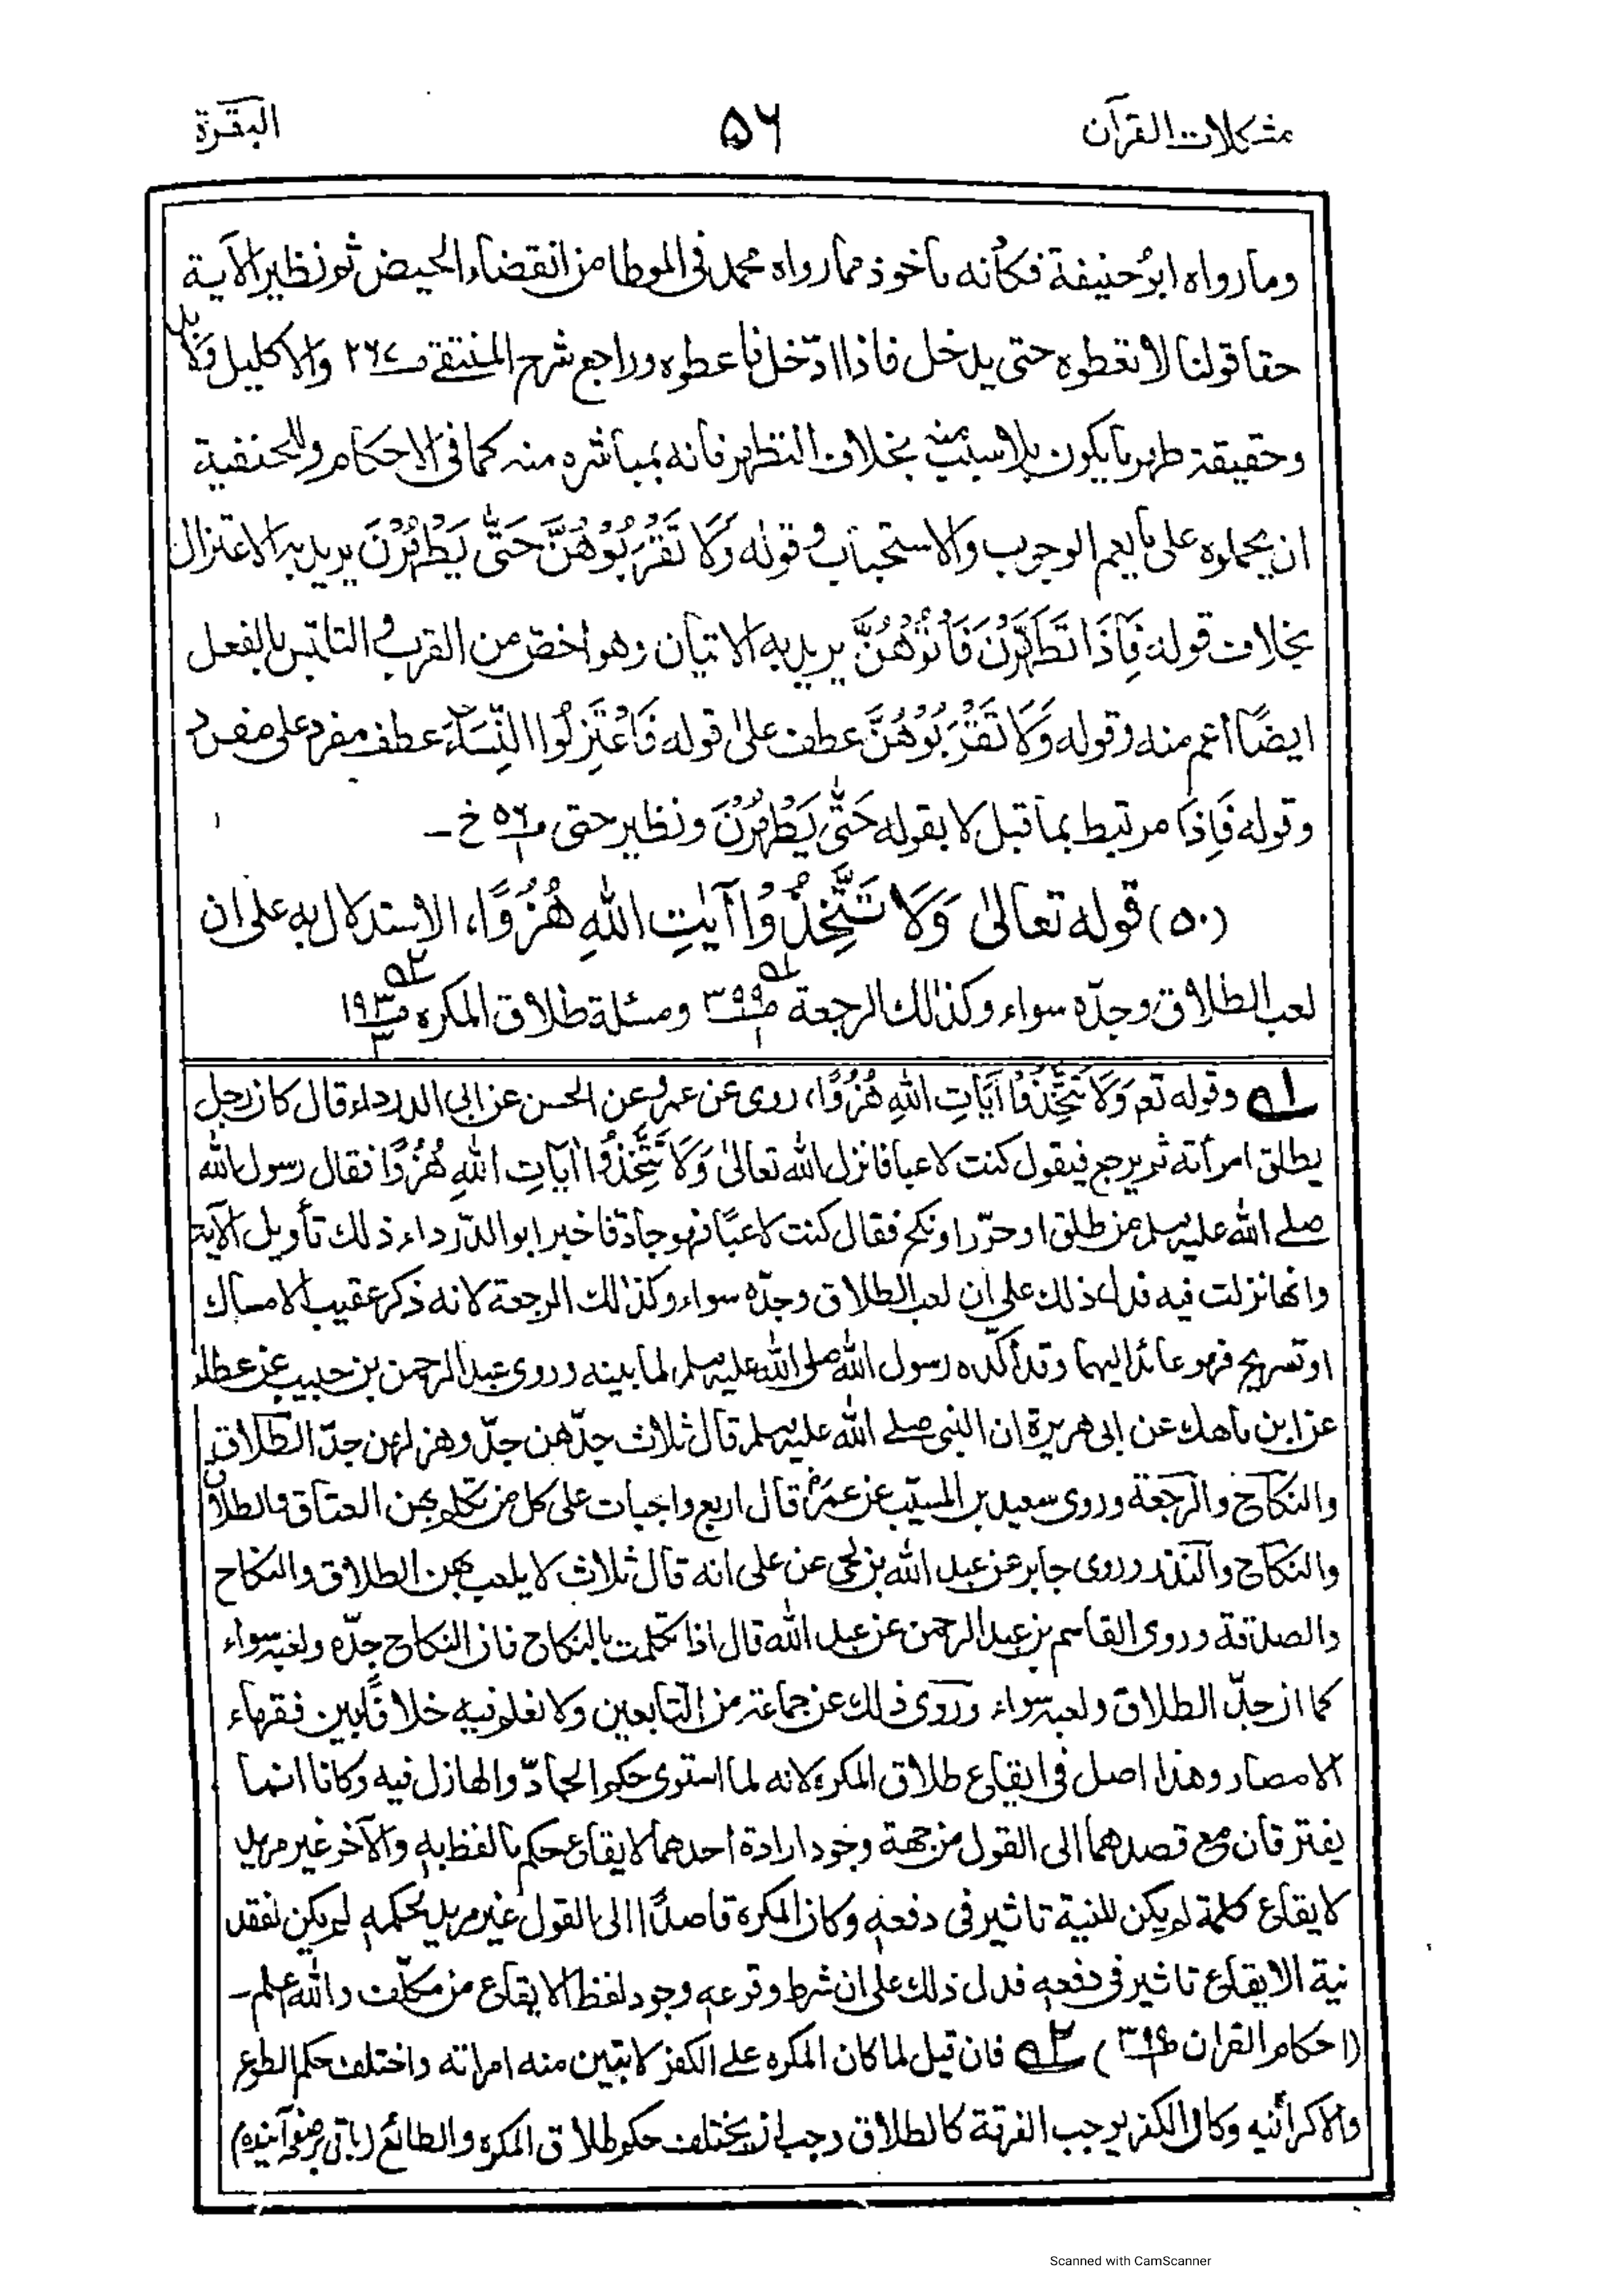 مشكلات القرآن
۵۶
البقرة
وما رواه ابو حنيفة فكأنه مأخوذ مما رواه محمد فى الموطا من انقضاء الحيض ثم نظير الآية
حقا قولنا لا تعطوه حتى يدخل فاذا ادّخل فاعطوه وراجع شرح المنتقے والاكليل
وحقيقة طهر ما يكون بلا سبب منه بخلاف التطهر فانه بمباشره منه كما فى الاحكام وللحنفية
ان يحملوه على ما يعم الوجوب والاستحباب وقوله وَلَا تَقْرَبُوْهُنَّ حَتّٰى يَطْهُرْنَ يريد به الاعتزال
بخلاف قوله فَاِذَا تَطَهَّرْنَ فَأْتُوْهُنَّ يريد به الاتيان وهو اخصّ من القرب والتلبّس بالفعل
ايضًا اعم منه وقوله وَلَا تَقْرَبُوْهُنَّ عطف علىٰ قوله فَاعْتَزِلُوا النِّسَآءَ عطف مفرد على مفرد
وقوله فَاِذَا مرتبط بما قبل لا بقوله حَتّٰى يَطْهُرْنَ ونظير حتى ص۵۶ ۱ خ -
(۵۰) قوله تعالىٰ وَلَا تَتَّخِذُوْا آيٰتِ اللّٰهِ هُزُوًا، الاستدلال به على ان
لعب الطلاق وجدّه سواء وكذلك الرجعة ص۳۹۹ ۱ ۵۱ ومسئلة طلاق المكره ص۱۹۳ ۳ ۵۲
۵۱ وقوله تعم وَلَا تَتَّخِذُوْا آيَاتِ اللّٰهِ هُزُوًا، روى عن عمرو عن الحسن عن ابى الدرداء قال كان رجل
يطلق امرأته ثم يرجع فيقول كنت لاعبا فانزل اللّٰه تعالىٰ وَلَا تَتَّخِذُوْا آيَاتِ اللّٰهِ هُزُوًا فقال رسول اللّٰه
صلے اللّٰه عليه وسلم من طلق او حرّر او نكح فقال كنت لاعبًا فهو جادّ فاخبر ابو الدّرداء ذلك تأويل الآية
وانها نزلت فيه فدل ذلك على ان لعب الطلاق وجدّه سواء وكذلك الرجعة لانه ذكر عقيب الامساك
او تسريح فهو عائد اليهما وقد أكده رسول اللّٰه صلى اللّٰه عليه وسلم لما بينه وروى عبد الرحمن بن حبيب عن عطاء
عن ابن ماهك عن ابى هريرة ان النبى صلے اللّٰه عليه وسلم قال ثلاث جدّهن جدّ وهزلهن جدّ الطلاق
والنكاح والرجعة وروى سعيد بن المسيّب عن عمر قال اربع واجبات على كل من تكلم بهن العتاق والطلاق
والنكاح والنذر وروى جابر عن عبد اللّٰه بن لحى عن على انه قال ثلاث لا يلعب بهن الطلاق والنكاح
والصدقة وروى القاسم بن عبد الرحمن عن عبد اللّٰه قال اذا تكلمت بالنكاح فان النكاح جدّه ولعبه سواء
كما ان جدّ الطلاق ولعبه سواء وروى ذلك عن جماعة من التابعين ولا نعلم فيه خلافًا بين فقهاء
الامصار وهذا اصل فى ايقاع طلاق المكره لانه لما استوى حكم الجادّ والهازل فيه وكانا انما
يفترقان مع قصدهما الى القول من جهة وجود ارادة احدهما لايقاع حكم ما لفظ به والآخر غير مريد
لايقاع كلمة لم يكن للنية تاثير فى دفعه وكان المكره قاصدًا الى القول غير مريد بحكمه لم يكن لفقد
نية الايقاع تاثير فى دفعه فدل ذلك على ان شرط وقوعه وجود لفظ الايقاع من مكلّف واللّٰه اعلم-
(احكام القران ص۳۹۹ ۱) ۵۲ فان قيل لما كان المكره على الكفر لا تبين منه امراته واختلف حكم الطوع
والاكراه فيه وكان الكفر يوجب الفرقة كالطلاق وجب ان يختلف حكم طلاق المكره والطائع (باقى برصفحه آينده)
Scanned with CamScanner